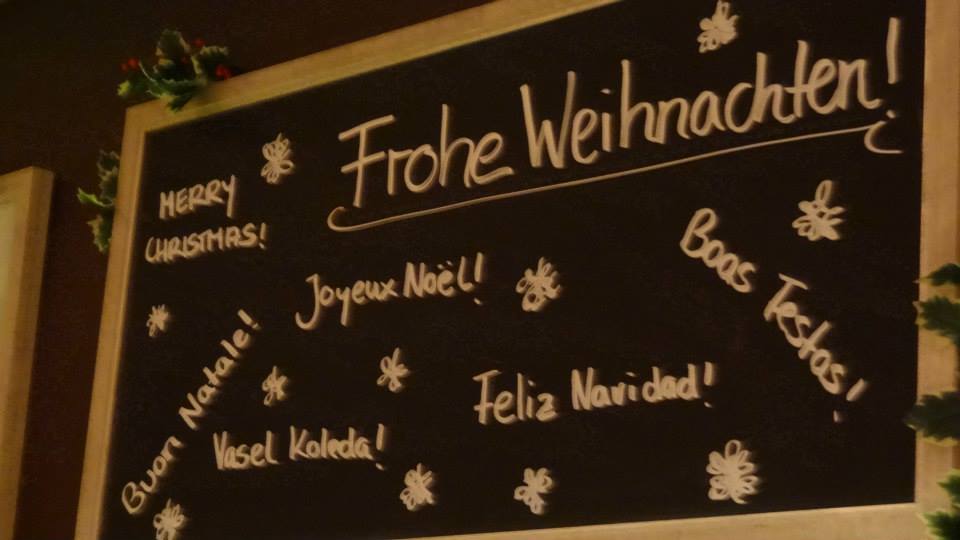 Frohe Weihnachten!
MERRY
CHRISTMAS!
Joyeux Noël!
Boas Festas!
Buon Natale!
Feliz Navidad!
Vasel Koleda!